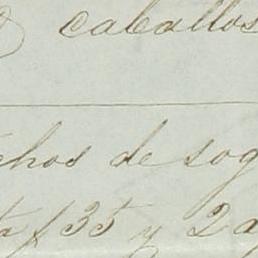 caballos
chos de sog
ta f 35 y 2 a